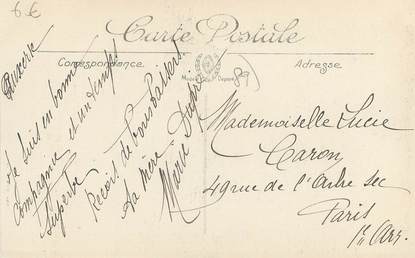 6€
Carte Postale
Correspondance
Adresse
89
Auxerre
Je suis en bonne
compagnie et un temps
superbe
Reçois de bons baisers
ta mère
Marie
Mademoiselle Lucie
Caron
49 rue de l'Arbre Sec
Paris
1er Arr.